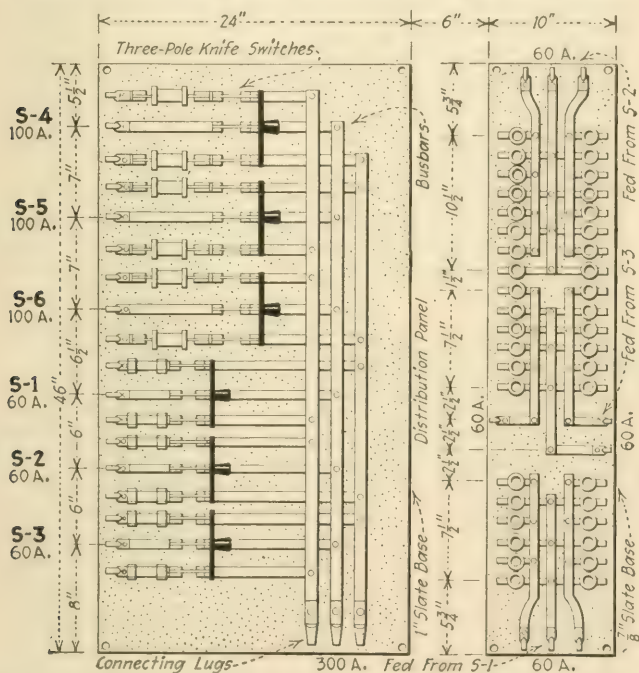 24"
6"
10"
Three-Pole Knife Switches
60 A.
5 1/2"
S-4
100 A.
7"
S-5
100 A.
7"
S-6
100 A.
6 1/2"
46"
S-1
60 A.
6"
S-2
60 A.
6"
S-3
60 A.
8"
Busbars
Distribution Panel
1" Slate Base
5 3/4"
10 1/2"
1 1/2"
7 1/2"
2 1/2"
60 A.
2 1/2"
2 1/2"
7 1/2"
5 3/4"
Fed From S-2
Fed From S-3
60 A.
7/8" Slate Base
Connecting Lugs
300 A.
Fed From S-1
60 A.